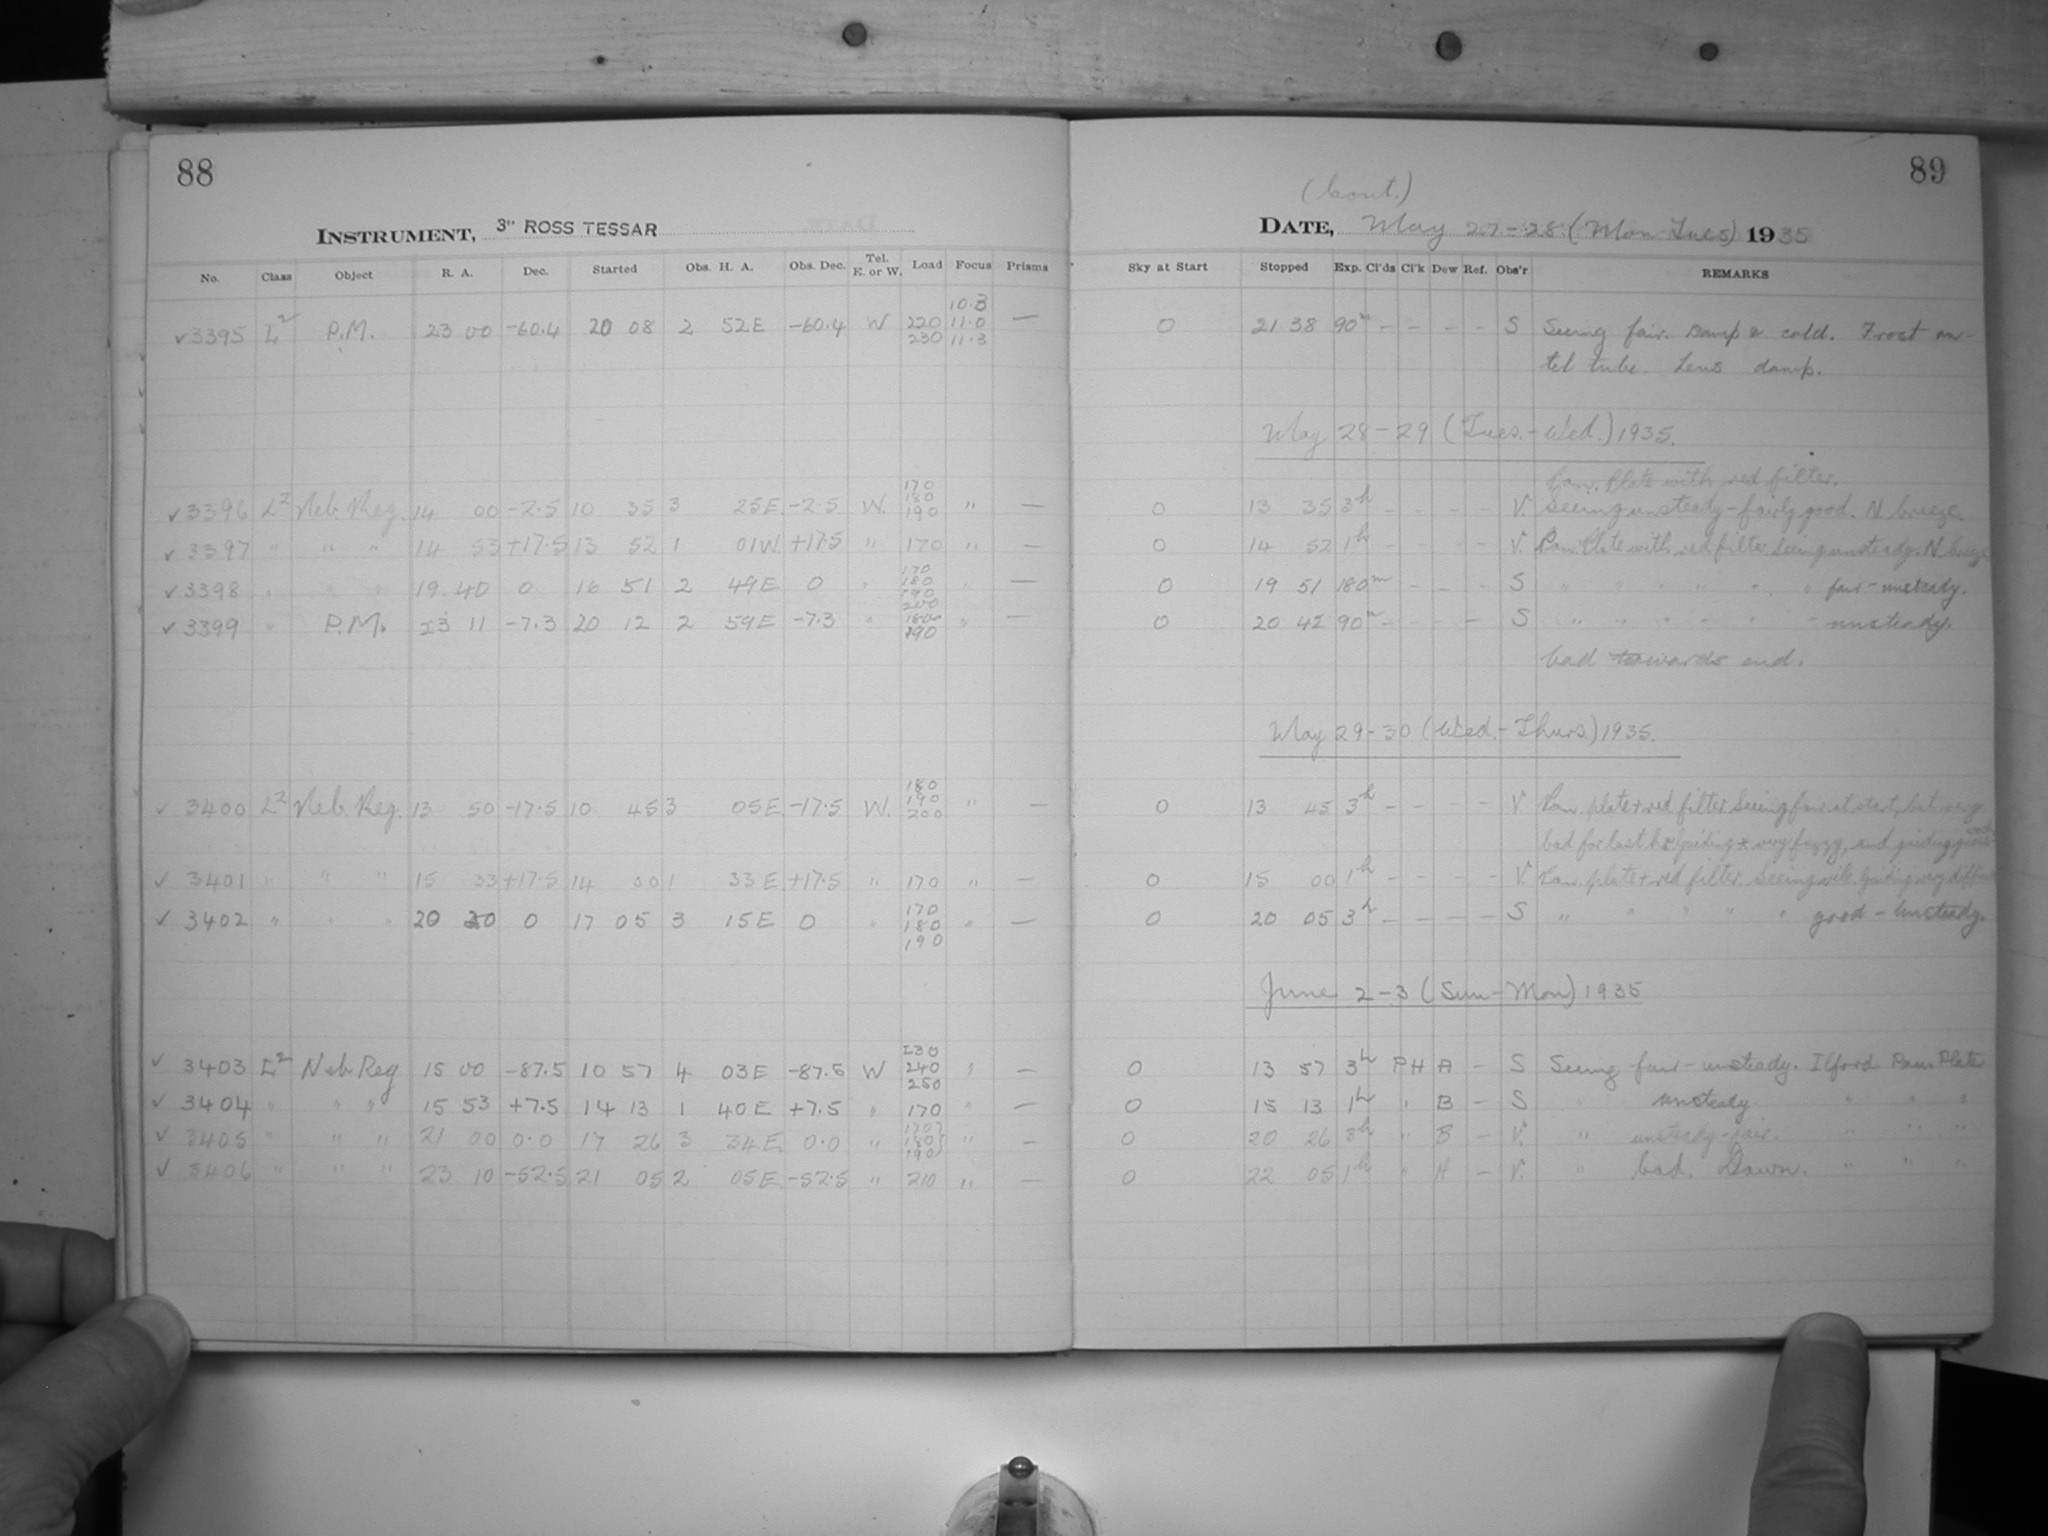 88
INSTRUMENT, 3" ROSS TESSAR
No. Class Object R. A. Dec. Started Obs. H. A. Obs. Dec. Tel. E. or W. Load Focus Prisms
✓3395 L² P.M. 23 00 -60.4 20 08 2 52E -60.4 W 220 230 10.3 11.0 11.3 —
✓3396 L² Neb. Reg. 14 00 -2.5 10 35 3 25E -2.5 W. 170 180 190 " —
✓3397 " " " 14 53 +17.5 13 52 1 01W +17.5 " 170 " —
✓3398 " " " 19 40 0 16 51 2 49E 0 " 170 180 190 " —
✓3399 " P.M. 23 11 -7.3 20 12 2 59E -7.3 " 200 180 190 " —
✓ 3400 L² Neb. Reg. 13 50 -17.5 10 45 3 05E -17.5 W. 180 190 200 " —
✓ 3401 " " " 15 33 +17.5 14 00 1 33E +17.5 " 170 " —
✓ 3402 " " " 20 20 0 17 05 3 15E 0 " 170 180 190 " —
✓ 3403 L² Neb Reg 15 00 -87.5 10 57 4 03E -87.5 W 230 240 250 " —
✓ 3404 " " " 15 53 +7.5 14 13 1 40E +7.5 " 170 " —
✓ 3405 " " " 21 00 0.0 17 26 3 34E 0.0 " 170 180 190 " —
✓ 3406 " " " 23 10 -52.5 21 05 2 05E -52.5 " 210 " —
89
(Cont.)
DATE, May 27-28 (Mon-Tues) 1935
Sky at Start Stopped Exp. Cl'ds Cl'k Dew Ref. Obs'r REMARKS
0 21 38 90m - - - - S Seeing fair. Damp & cold. Frost on
tel tube. Lens damp.
May 28-29 (Tues.-Wed.) 1935.
Pan. Plate with red filter.
0 13 35 3h - - - - V. Seeing unsteady-fairly good. N. breeze.
0 14 52 1h - - - - V. Pan. Plate with red filter. Seeing unsteady. N. breeze
0 19 51 180m - - - - S " " " " " " fair-unsteady.
0 20 42 90m - - - - S " " " " " " unsteady.
bad towards end.
May 29-30 (Wed.-Thurs) 1935.
0 13 45 3h - - - - V. Pan. plate + red filter. Seeing fair at start, but very
bad for last hr. Guiding very fuzzy, and guiding
0 15 00 1h - - - - V. Pan. plate + red filter. Seeing Guiding very
0 20 05 3h - - - - S " " " " " good - Unsteady.
June 2-3 (Sun-Mon) 1935
0 13 57 3h PH A - S Seeing fair-unsteady. Ilford Pan. Plate
0 15 13 1h " B - S " unsteady " " "
0 20 26 3h " B - V. " unsteady-fair. " " "
0 22 05 1h " H - V. " bad. Dawn. " " "